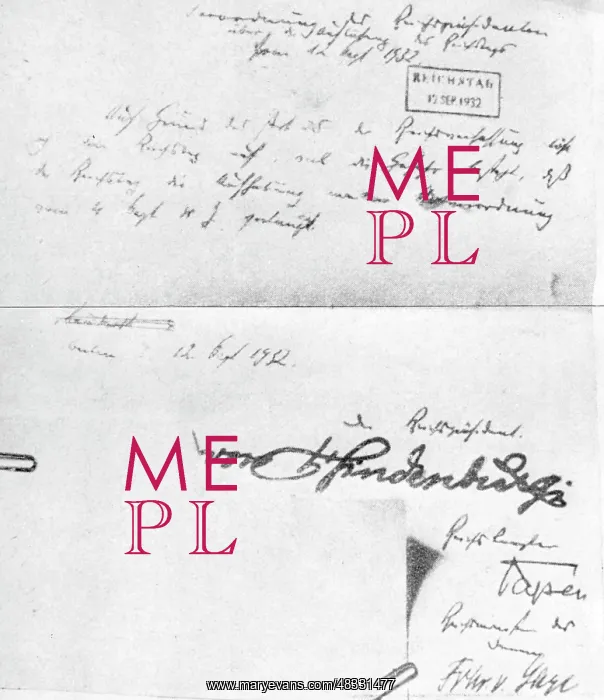 Verordnung des Reichspräsidenten
über die Auflösung des Reichstags
vom 12. Sept 1932.
REICHSTAG
12. SEP. 1932
Auf Grund des Art der Reichsverfassung löse
ich den Reichstag auf, weil die Gefahr besteht, daß
der Reichstag die Aufhebung meiner Notverordnung
vom 4. Sept d. J. verlangt.
ME
PL
12. Sept 1932.
Der Reichspräsident.
von Hindenburg
ME
PL
Reichskanzler
Papen
Reichsminister des
Innern
Frhr. v. Gayl
www.maryevans.com/48331477